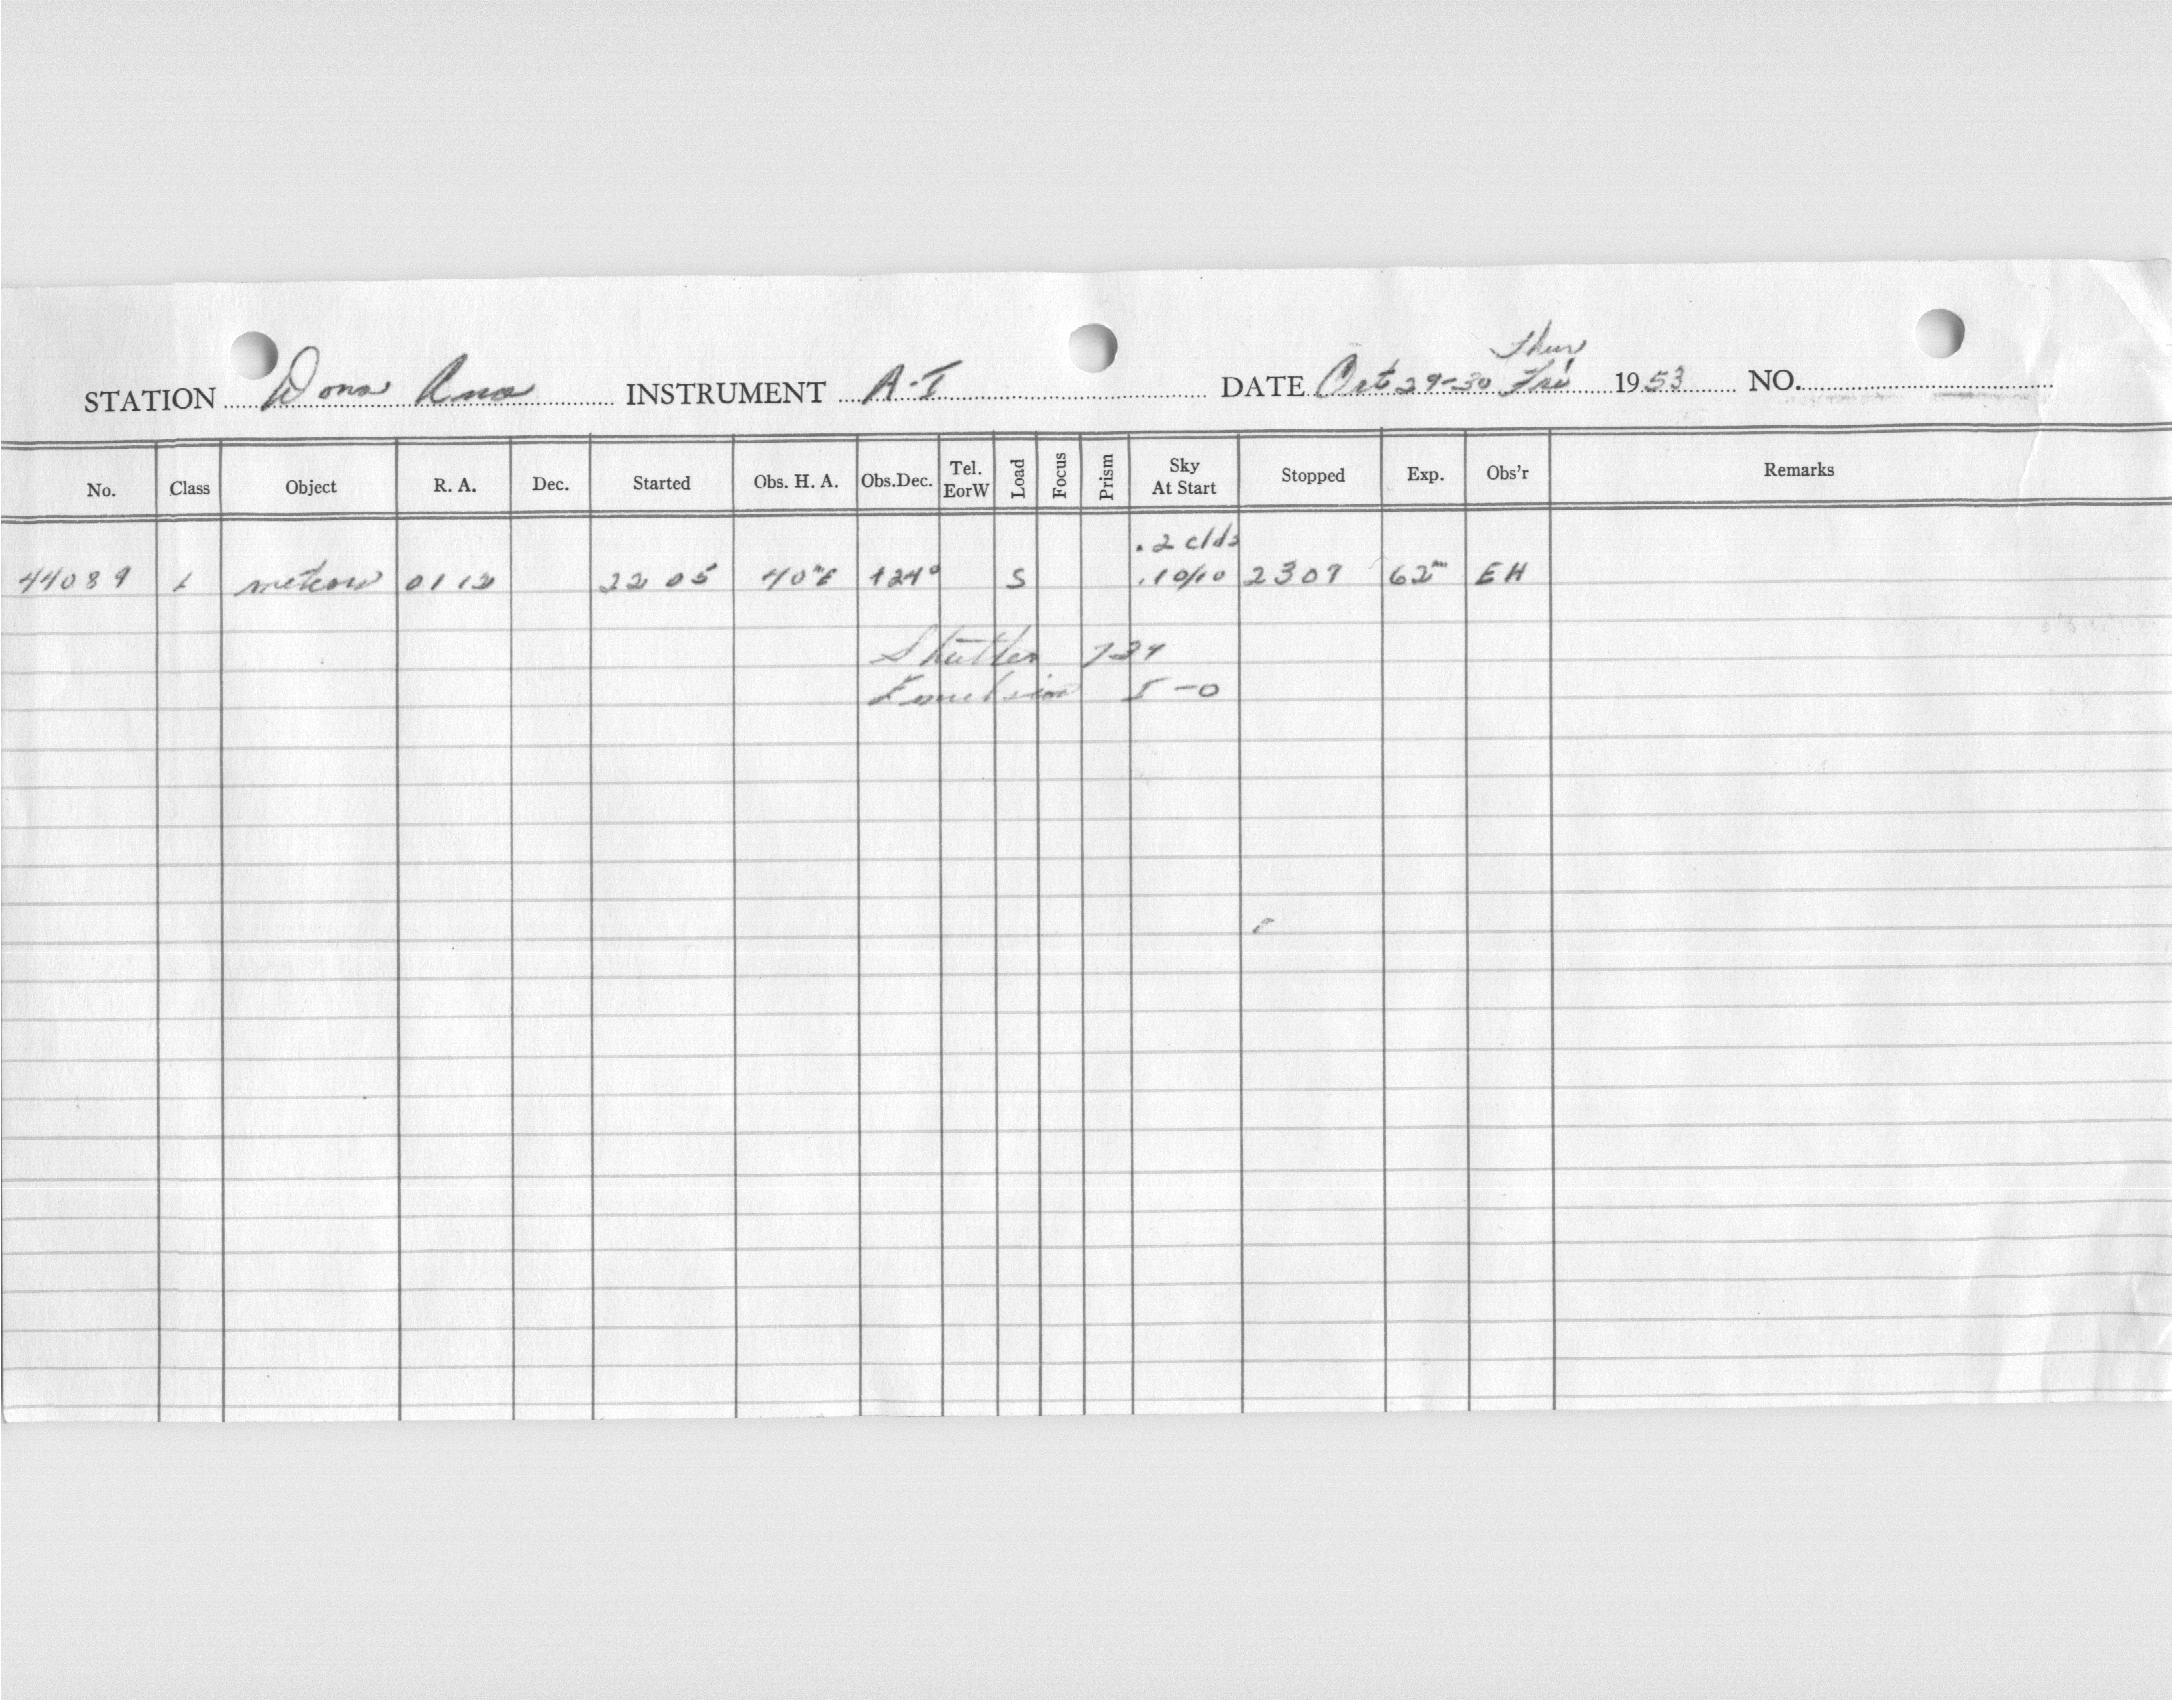 Thur
STATION Dona Ana INSTRUMENT A-I DATE Oct 29-30 Fri 1953 NO.
No. Class Object R. A. Dec. Started Obs. H. A. Obs.Dec. Tel. EorW Load Focus Prism Sky At Start Stopped Exp. Obs'r Remarks
.2 clds
44089 L meteor 01 12 22 05 40ᵐE +24° S .10/10 2307 62ᵐ EH
Shutter 724
Emulsion I-O